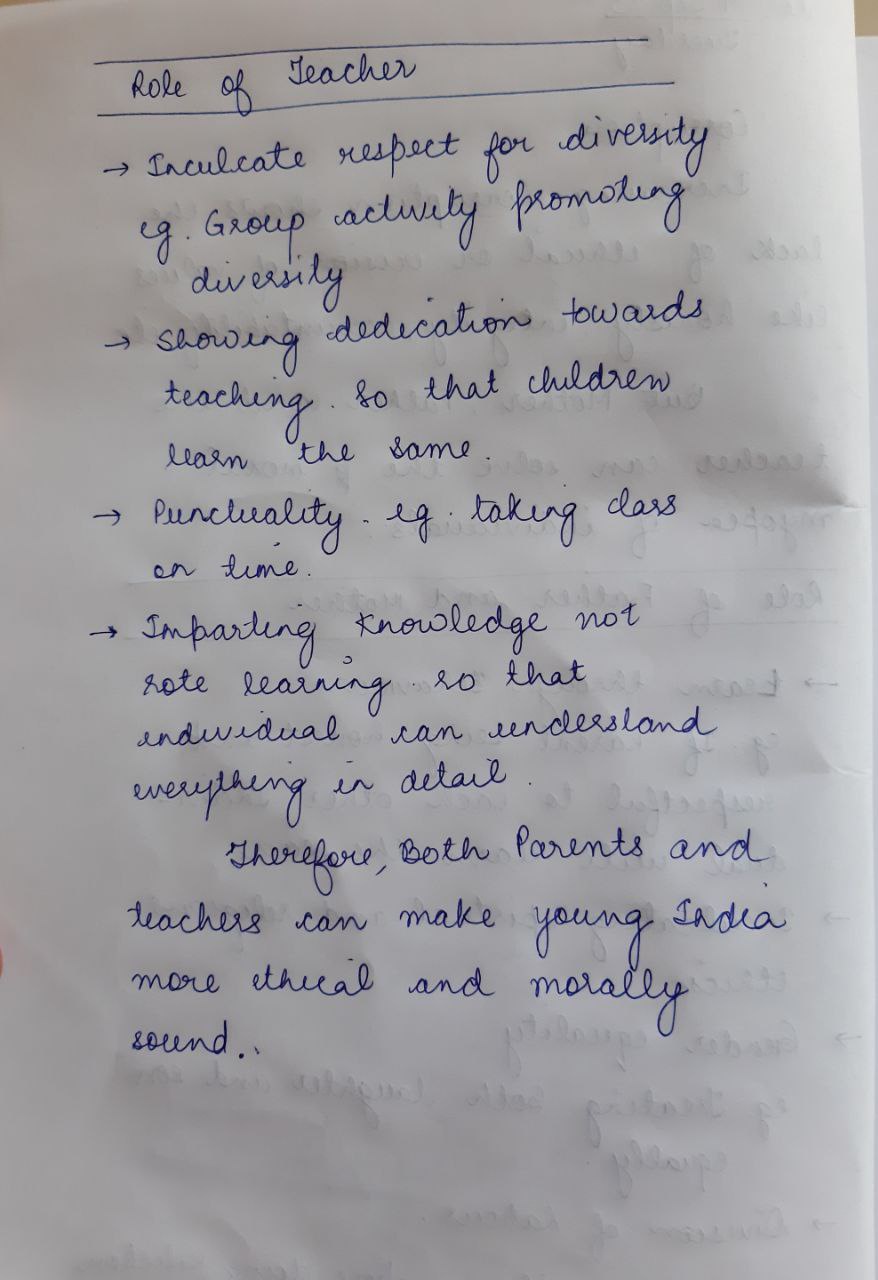 Role of Teacher
→ Inculcate respect for diversity
eg. Group activity promoting
diversity
→ Showing dedication towards
teaching. So that children
learn the same.
→ Punctuality. eg. taking class
on time.
→ Imparting knowledge not
rote learning. so that
individual can understand
everything in detail.
Therefore, Both Parents and
teachers can make young India
more ethical and morally
sound..